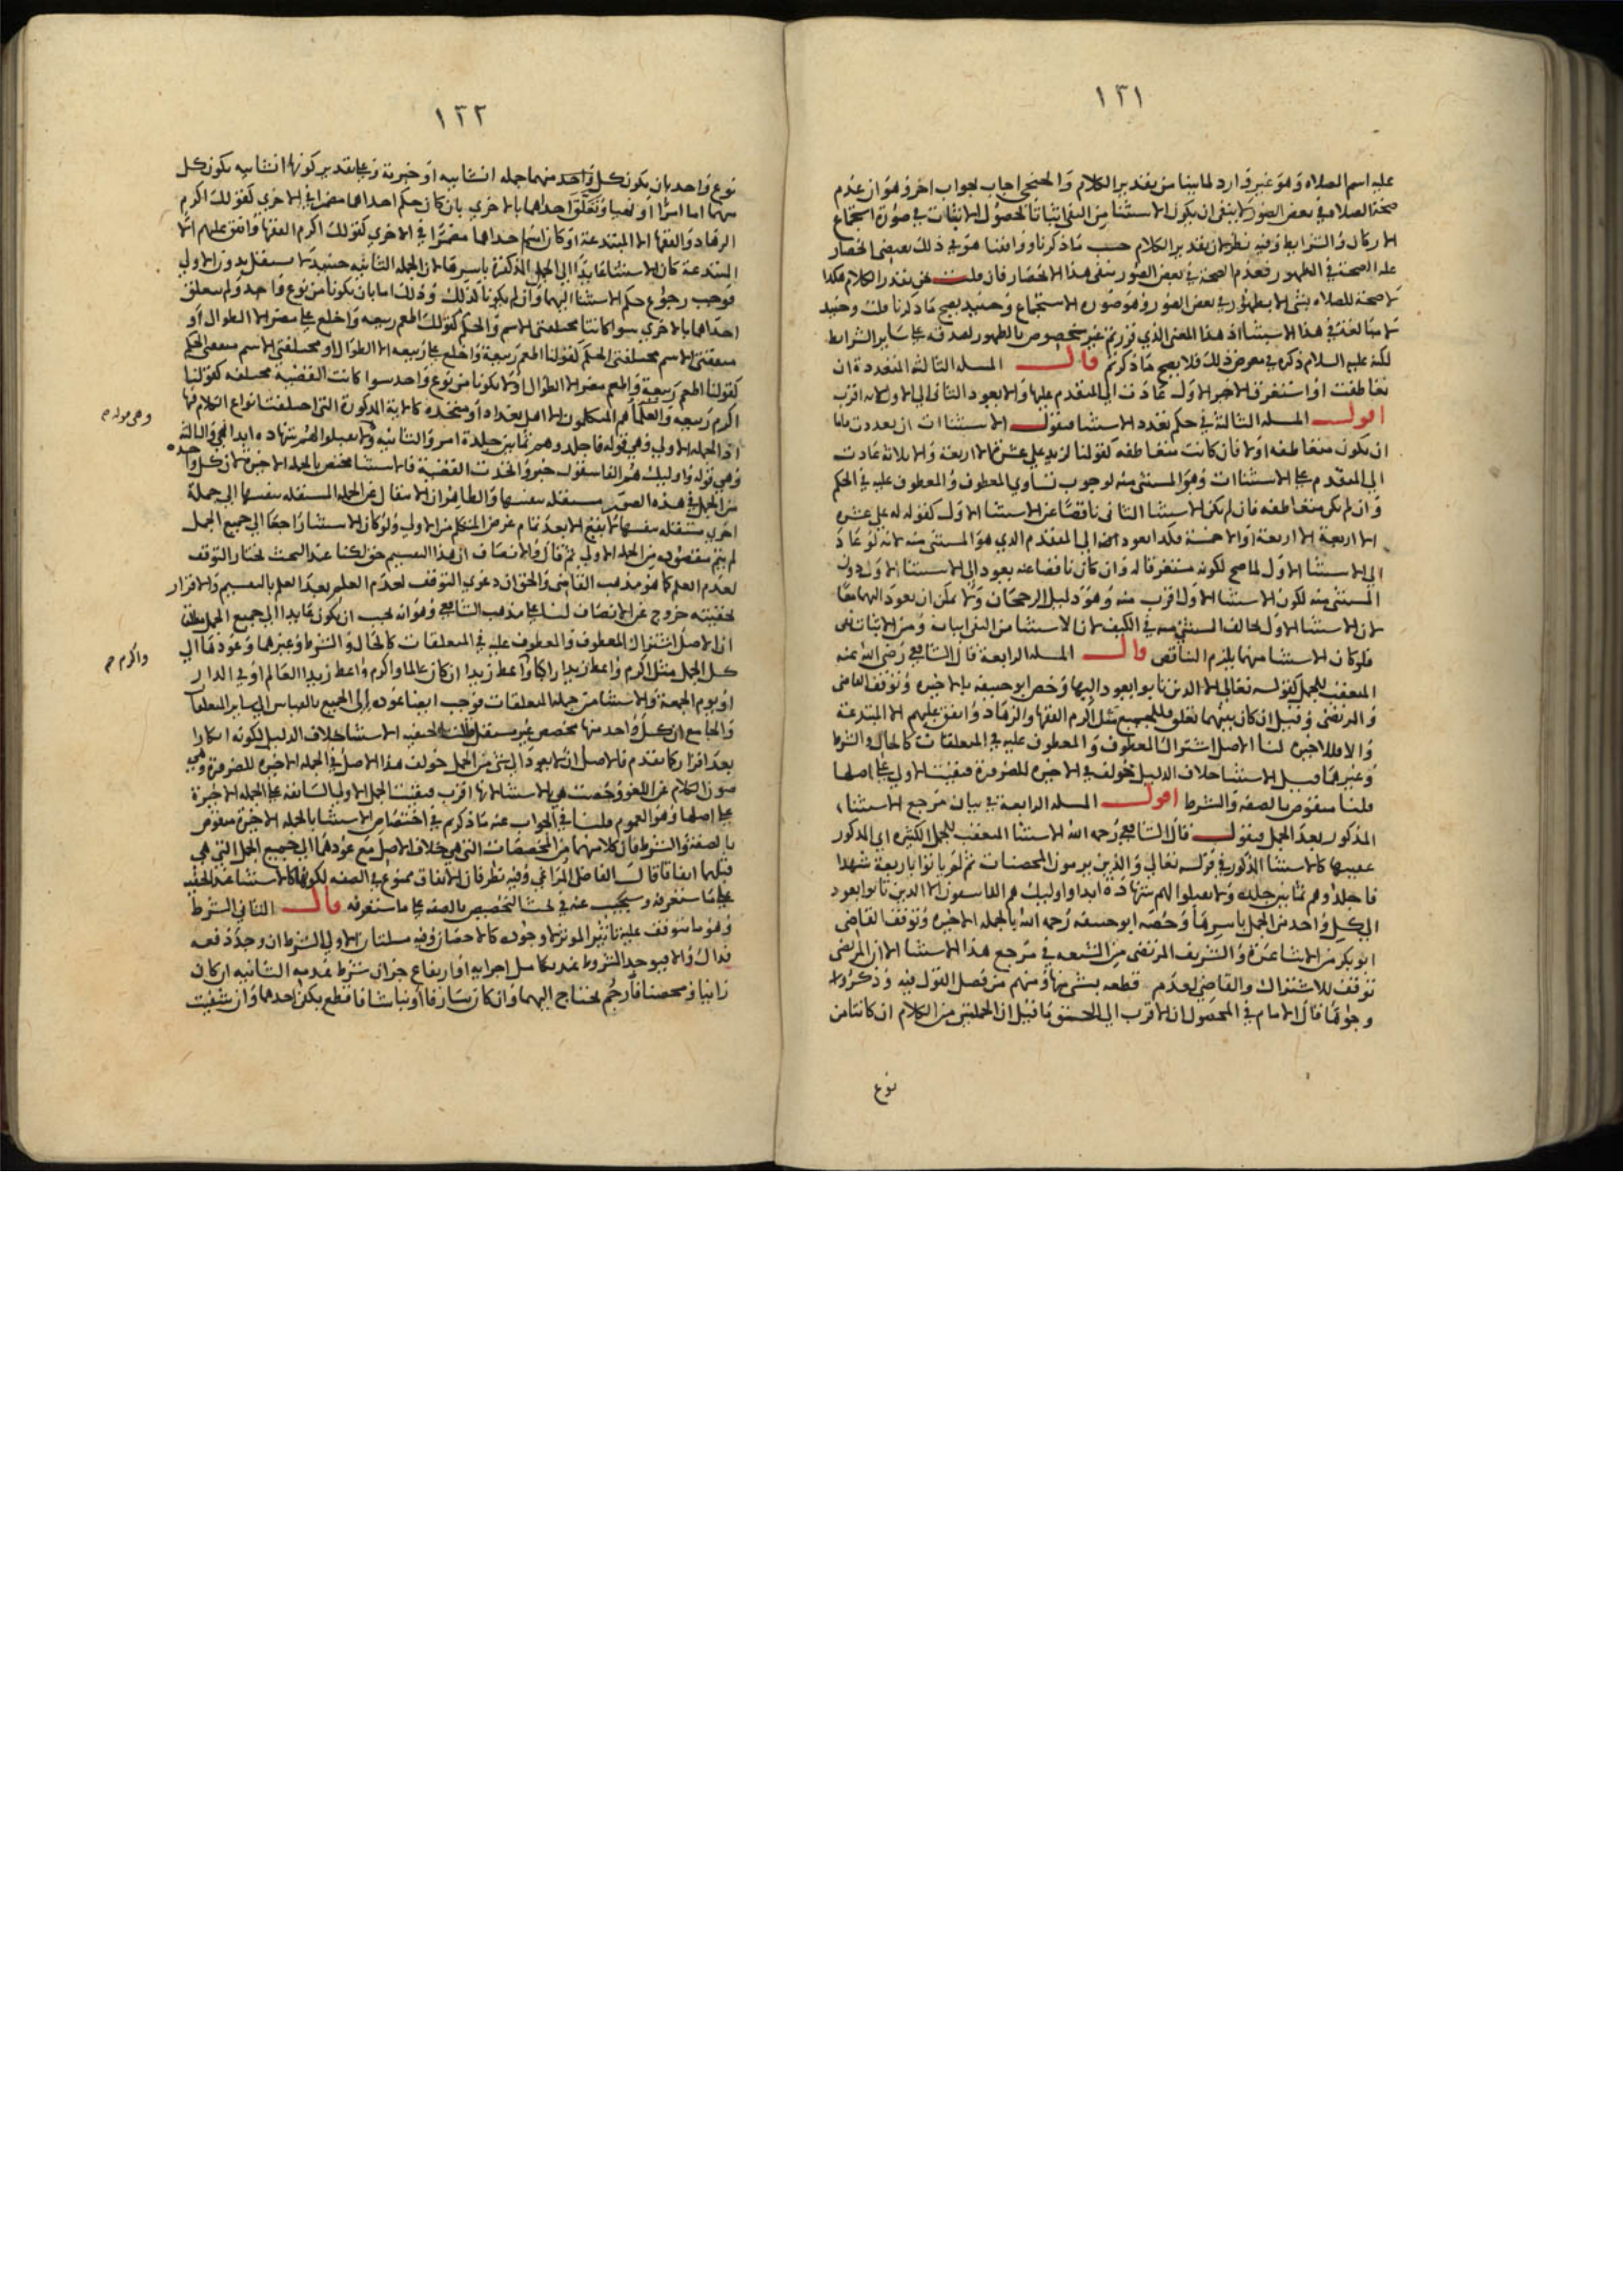 ١٣١
عليه اسم الصلاه وهو غير وارد لما بينا من تقدير الكلام والحنفي اجاب بجواب اخر وهو ان عدم
صحة الصلاه في بعض الصور لا ينفي ان يكون الاستثنا من النفي اثباتا لحصول الاثبات في صورة استجماع
الاركان والشرايط وفيه نظر لان تقدير الكلام حسب ما ذكرنا ووافقنا هو في ذلك يقتضي انحصار
علة الصحة في الطهور فعدم الصحة في بعض الصور ينفي هذا الانحصار فان قلت نحن نقدر الكلام هكذا
لا صحة للصلاه بشي الا بطهور في بعض الصور وهو صورة الاستجماع وحينيد يصح ما ذكرنا قلت وحينيد
لا مبالغة في هذا الاستثنا اذ هذا المعنى الذي قررتم غير مخصوص بالطهور لصدقه على ساير الشرايط
لكنه عليه السلام ذكره في معرض ذلك فلا يصح ما ذكرتم قال المسله الثالثة المتعددة ان
تعاطفت او استغرق الاخير الاول عادت الى المتقدم عليها والا يعود الثاني الى الاول لانه اقرب
اقول المسله الثالثة في حكم تعدد الاستثنا فنقول الاستثناات ان تعددت فاما
ان يكون متعاطفه اولا فان كانت متعاطفه كقولنا لزيد علي عشرة الا اربعة والا ثلاثة عادت
الى المتقدم على الاستثناات وهو المستثنى منه لوجوب تساوي المعطوف والمعطوف عليه في الحكم
وان لم يكن متعاطفه فان لم يكن الاستثنا الثاني ناقصا عن الاستثنا الاول كقوله له علي عشره
الا اربعة الا اربعة او الا خمسة فكذا يعود الى المتقدم الذي هو المستثنى منه لانه لو عاد
الى الاستثنا الاول لما صح لكونه مستغرقا له وان كان ناقصا عنه يعود الى الاستثنا الاول دون
المستثنى منه لكون الاستثنا الاول اقرب منه وهو دليل الرجحان ولا يمكن ان يعود اليهما معا
لان الاستثنا الاول يخالف المستثنى منه في الكيف لان الاستثنا من النفي اثبات ومن الاثبات نفي
فلو كان الاستثنا منهما يلزم التناقض قال المسله الرابعة قال الشافعي رضي الله عنه
المعقب للجمل كقوله تعالى الا الذين تابوا يعود اليها وخص ابو حنيفه بالاخيره وتوقف القاضي
والمرتضى وقيل ان كان بينهما تعلق فللجميع مثل اكرم الفقها والزهاد وانفق عليهم الا المبتدعة
والا فللاخيره لنا الاصل اشتراك المعطوف والمعطوف عليه في المتعلقات كالحال والشرط
وغيرهما قيل الاستثنا خلاف الدليل خولف في الاخيره للضرورة فبقيت الاولى على اصلها
قلنا منقوض بالصفه والشرط اقول المسله الرابعة في بيان مرجع الاستثنا
المذكور بعد الجمل فنقول قال الشافعي رحمه الله الاستثنا المعقب للجمل الكثيره اي المذكور
عقيبها كالاستثنا المذكور في قوله تعالى والذين يرمون المحصنات ثم لم ياتوا باربعة شهدا
فاجلدوهم ثمانين جلدة ولا تقبلوا لهم شهادة ابدا واوليك هم الفاسقون الا الذين تابوا يعود
الى كل واحد من الجمل باسرها وخصه ابو حنيفه رحمه الله بالجملة الاخيره وتوقف القاضي
ابو بكر من الاشاعرة والشريف المرتضى من الشيعه في مرجع هذا الاستثنا الا ان المرتضى
توقف للاشتراك والقاضي لعدم قطعه بشي منها ومنهم من فصل القول فيه وذكروا
وجوها قال الامام في المحصول ان الاقرب الى التحقيق ما قيل ان الجملتين من الكلام ان كانتا من
نوع
١٣٢
نوع واحد بان يكون كل واحد منهما جملة انشائيه او خبرية وعلى تقدير كونها انشائيه يكون كل
منهما اما امرا او نهيا وتعلق احداهما بالاخري بان كان حكم احداهما مضمرا في الاخري كقولك اكرم
الزهاد والفقها الا المبتدعة او كان اسم احداهما مضمرا في الاخري كقولك اكرم الفقها وانفق عليهم الا
المبتدعة كان الاستثنا عايدا الى الجمل المذكورة باسرها لان الجمله الثانيه حينيد لا يستقل بدون الاولى
فوجب رجوع حكم الاستثنا اليهما وان لم يكونا كذلك وذلك اما بان يكونا من نوع واحد ولم يتعلق
احداهما بالاخري سوا كانتا مختلفتي الاسم والحكم كقولك اطعم ربيعه واخلع على مضر الا الطوال او
متفقتي الاسم مختلفتي الحكم كقولنا اطعم ربيعة واخلع على ربيعه الا الطوال او مختلفتي الاسم متفقتي الحكم
كقولنا اطعم ربيعة واطعم مضر الا الطوال او لا يكونا من نوع واحد سوا كانت القضية مختلفه كقولنا
اكرم ربيعه والعلما هم المتكلمون الا اهل بغداد او متحده كالاية المذكورة التي اختلفت انواع الكلام فيها
اذ الجمله الاولى وهي قوله فاجلدوهم ثمانين جلدة امر والثانيه ولا تقبلوا لهم شهادة ابدا نهي والثالثة
وهي قوله واوليك هم الفاسقون خبر واتحدت القضية فالاستثنا مختص بالجمله الاخيره لان كل واحده
من الجمل في هذه الصور مستقله بنفسها والظاهر ان الانتقال عن الجمله المستقله بنفسها الى جملة
اخري مستقله بنفسها لا يقع الا بعد تمام غرض المتكلم من الاولى ولو كان الاستثنا راجعا الى جميع الجمل
لم يتم مقصوده من الجمله الاولى ثم قال والانصاف ان هذا التقسيم حق لكنا عند البحث نختار التوقف
لعدم العلم كما هو مذهب القاضي والحق ان دعوي التوقف لعدم العلم بعد العلم بالتقسيم والاقرار
بحقيته خروج عن الانصاف لنا على مذهب الشافعي وهو انه يجب ان يكون عايدا الى جميع الجمل
ان الاصل اشتراك المعطوف والمعطوف عليه في المتعلقات كالحال والشرط وغيرهما وعودهما الى
كل الجمل مثل اكرم واعط زيدا راكبا واعط زيدا ان كان عالما واكرم واعط زيدا العالم او في الدار
او يوم الجمعة والاستثنا من جملة المتعلقات فوجب ايضا عوده الى الجميع بالقياس الى ساير المتعلقات
والجامع ان كل واحد منها مخصص غير مستقل قالت الحنفيه الاستثنا خلاف الدليل لكونه انكارا
بعد اقرار كما تقدم فالاصل ان لا يعود الى شي من الجمل خولف هذا الاصل في الجملة الاخيره للضرورة وهي
صون الكلام عن اللغو وخصت هي بالاستثنا لانها اقرب فبقيت الجمل الاولى السابقة على الجمله الاخيرة
على اصلها وهو العموم قلنا في الجواب عنه ما ذكرتم في اختصاص الاستثنا بالجملة الاخيرة منقوض
بالصفة والشرط فان كلا منهما من المخصصات التي هي خلاف الاصل مع عودهما الى جميع الجمل التي هي
قبلهما اتفاقا قال الفاضل المراغي وفيه نظر فان الاتفاق ممنوع في الصفه لكونها كالاستثنا عند الحنفيه
على ما ستعرفه وسيجيب عنه في بحث التخصيص بالصفه على ما ستعرفه قال الثاني الشرط
وهو ما يتوقف عليه تاثير الموثر لا وجوده كالاحصان وفيه مسلتان الاولى الشرط ان وجد دفعه
فذاك والا فيوجد المشروط عند تكامل اجزايه او ارتفاع جزا ان شرط عدمه الثانيه ان كان
زانيا ومحصنا فارجم يحتاج اليهما وان كان سارقا او نباشا فاقطع يكفي احدهما وان شفيت
وهي قوله صح
واكرم صح